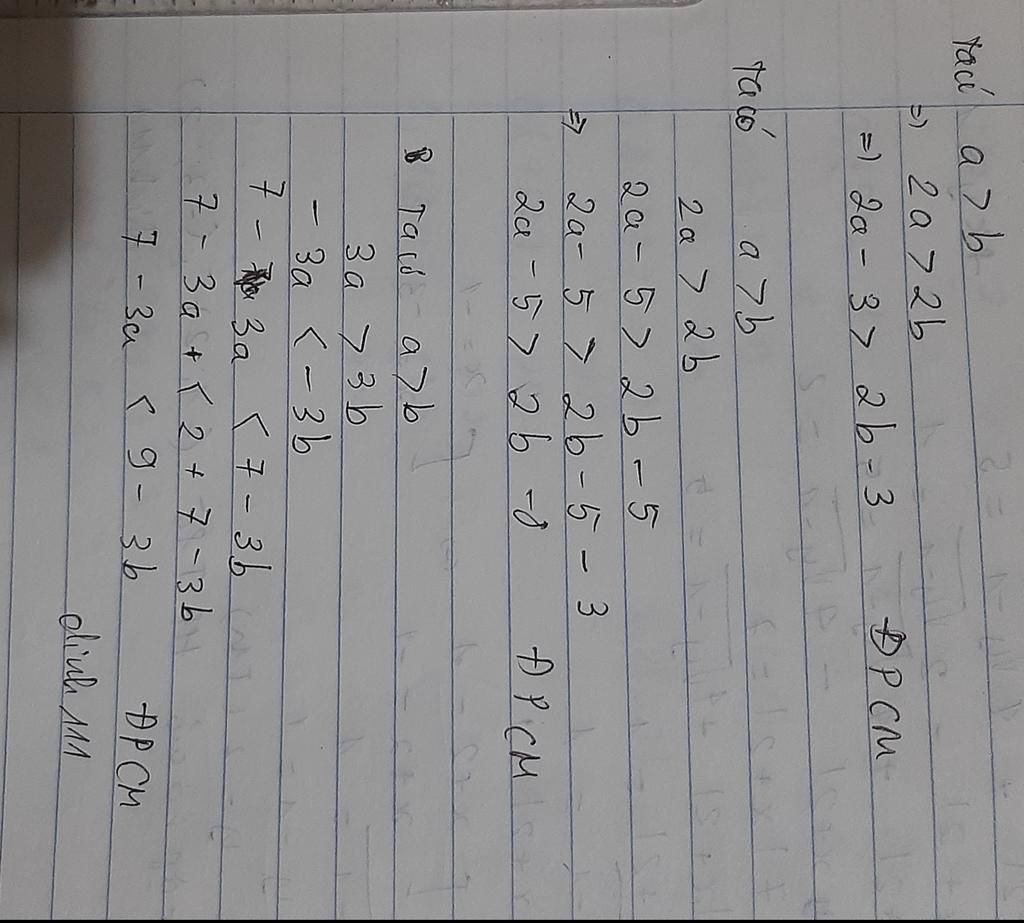 Ta có a > b
=> 2a > 2b
=> 2a - 3 > 2b - 3 ĐPCM
Ta có a > b
2a > 2b
2a - 5 > 2b - 5
=> 2a - 5 > 2b - 5 - 3
2a - 5 > 2b - 8 ĐPCM
Ta có a > b
3a > 3b
- 3a < - 3b
7 - 3a < 7 - 3b
7 - 3a + < 2 + 7 - 3b
7 - 3a < 9 - 3b ĐPCM
dinh 111